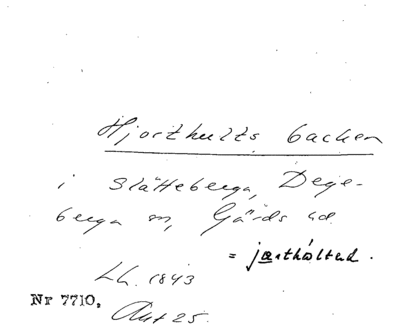 Hjorthults backen
i Slätteberga, Dege-
berga sn, Gärds hd.
= jɑrthåltɑd.
Lh. 1843
Nr 7710,
Akt 25.